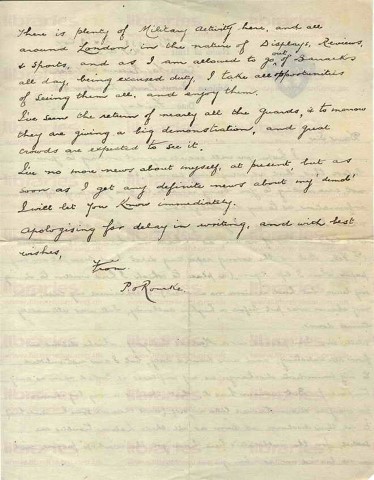 There is plenty of Military Activity here, and all
around London, in the nature of Displays, Reviews,
& Sports, and as I am allowed to go out of Barracks
all day, being excused duty, I take all opportunities
of seeing them all, and enjoy them.
I've seen the return of nearly all the Guards, & to morrow
they are giving a big demonstration, and great
crowds are expected to see it.
I've no more news about myself, at present, but as
soon as I get any definite news about my
I will let you know immediately.
Apologising for delay in writing, and with best
wishes,
From
P. O'Rourke.